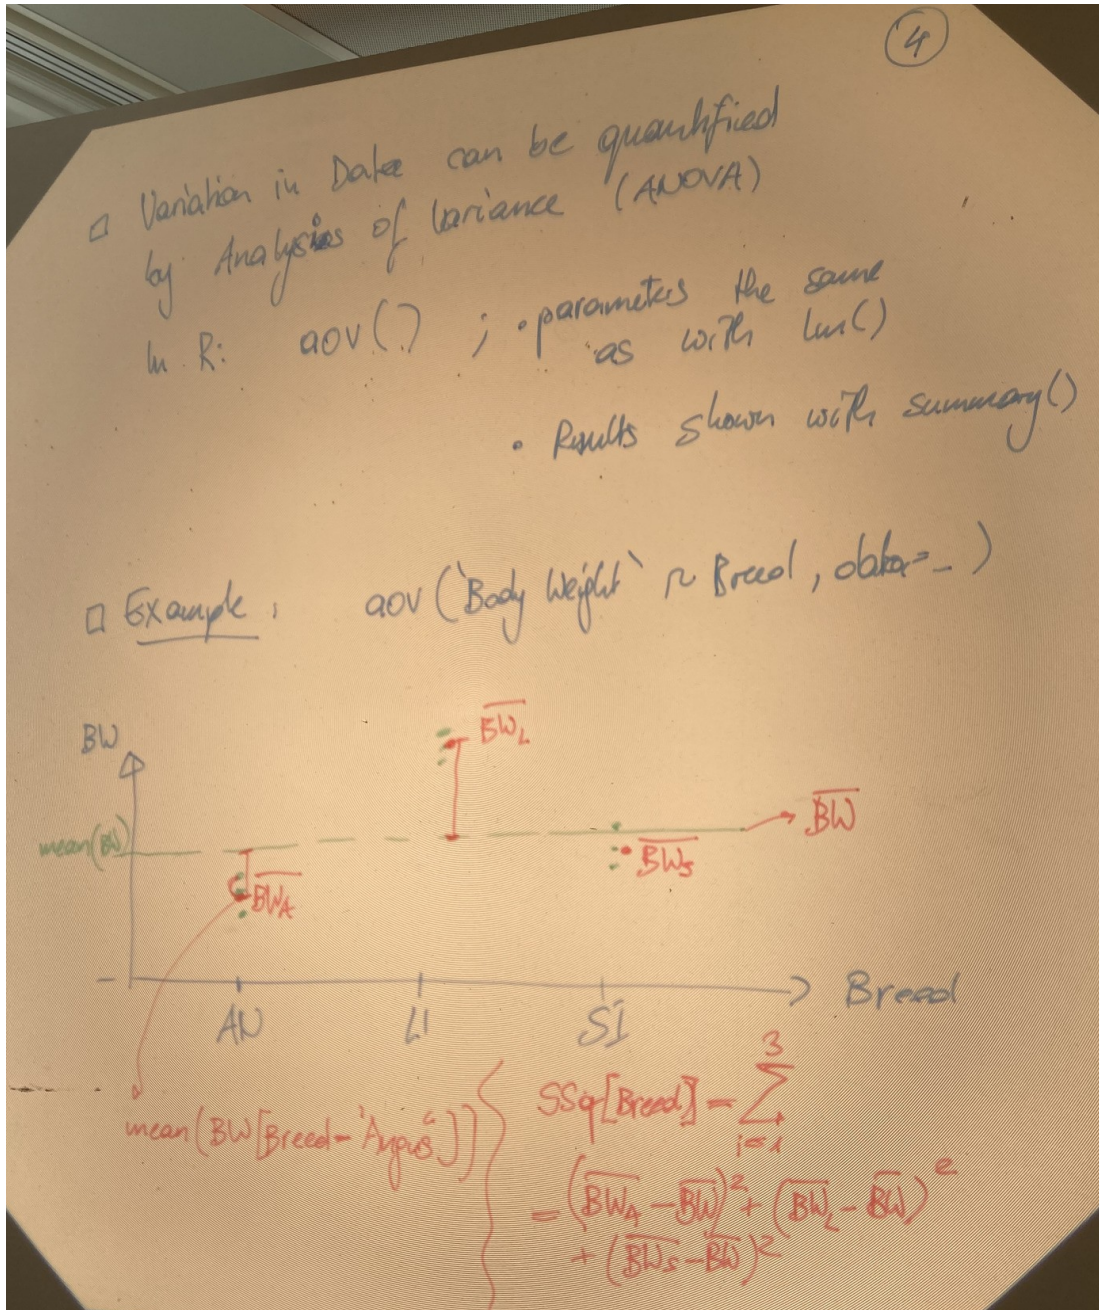 4
□ Variation in Data can be quantified
by Analysis of Variance (ANOVA)
In R: aov() ; • parameters the same
as with lm()
• Results shown with summary()
□ Example: aov(`Body Weight` ~ Breed, data=_)
BW
BW̅_L
mean(BW)
B̅W̅
B̅W̅_S
B̅W̅_A
AN LI SI Breed
mean(BW[Breed='Angus'])
SSq[Breed] = ∑ 3 i=1
= (B̅W̅_A − B̅W̅)² + (B̅W̅_L − B̅W̅)²
+ (B̅W̅_S − B̅W̅)²